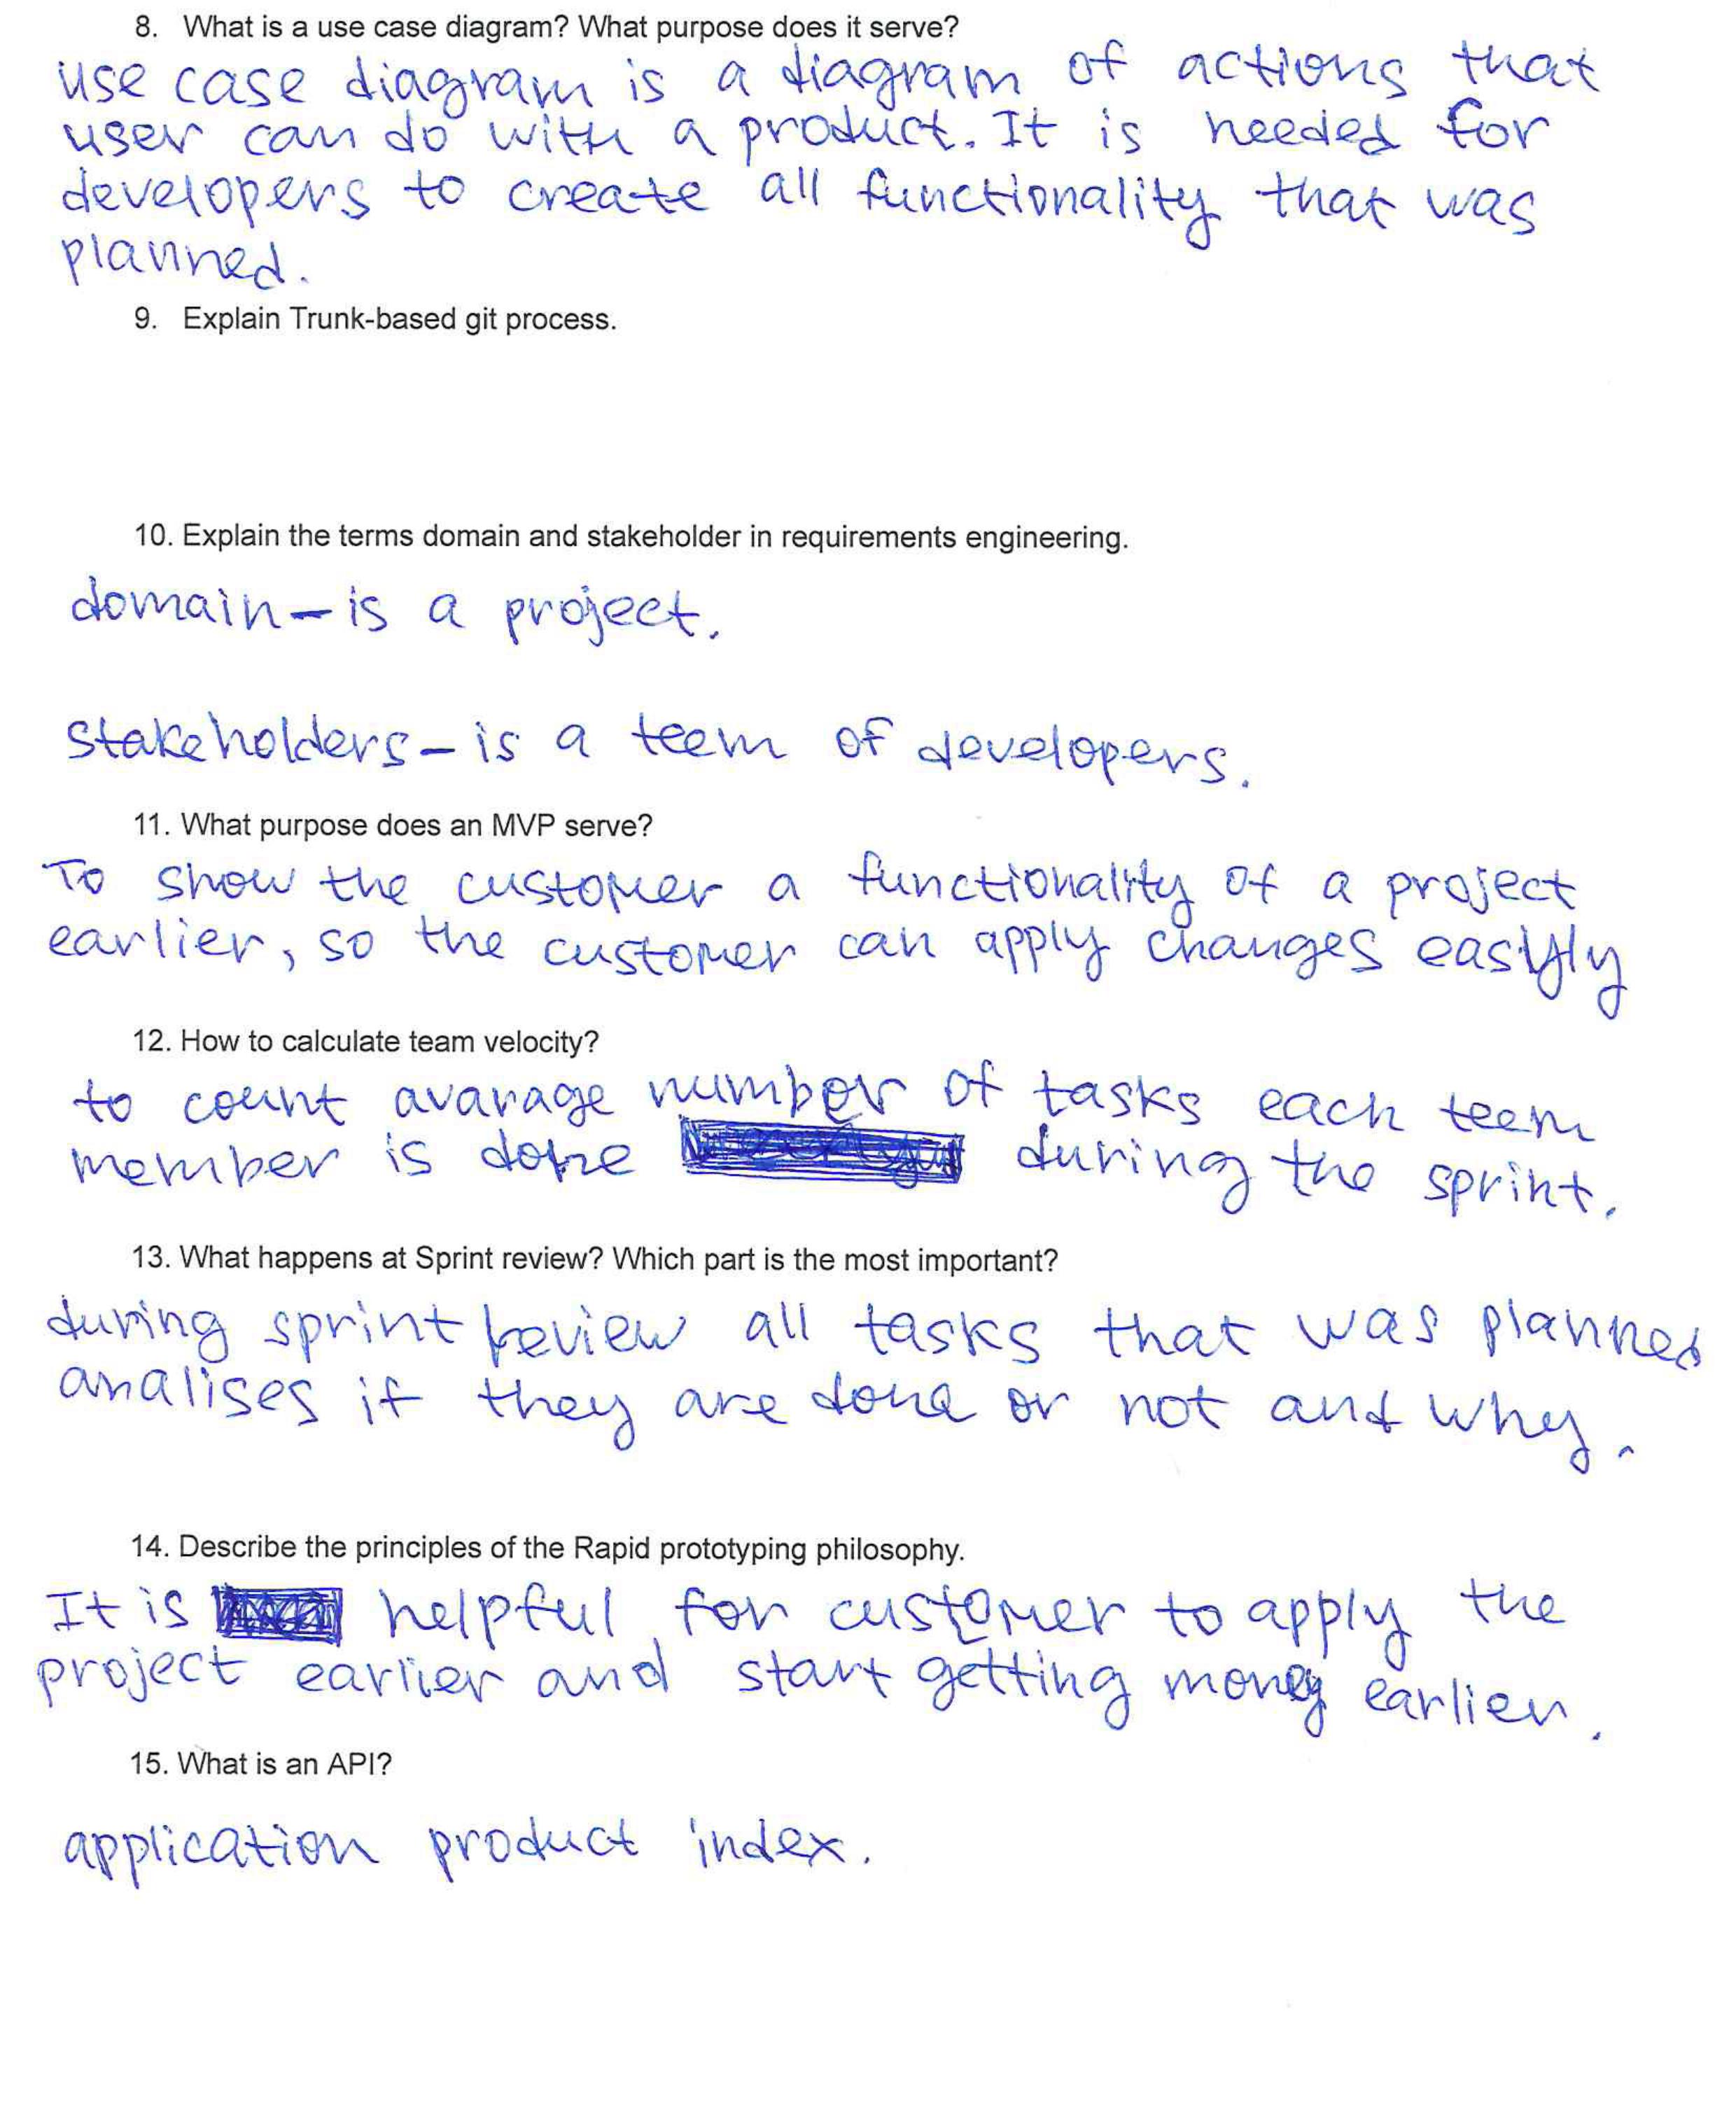 8. What is a use case diagram? What purpose does it serve?
use case diagram is a diagram of actions that
user can do with a product. It is needed for
developers to create all functionality that was
planned.
9. Explain Trunk-based git process.
10. Explain the terms domain and stakeholder in requirements engineering.
domain - is a project.
stakeholders - is a teem of developers.
11. What purpose does an MVP serve?
To show the customer a functionality of a project
earlier, so the customer can apply changes easyly
12. How to calculate team velocity?
to count avarage number of tasks each teem
member is done during the sprint.
13. What happens at Sprint review? Which part is the most important?
during sprint review all tasks that was planned
analises if they are done or not and why.
14. Describe the principles of the Rapid prototyping philosophy.
It is helpful for customer to apply the
project earlier and start getting money earlier.
15. What is an API?
application product index.